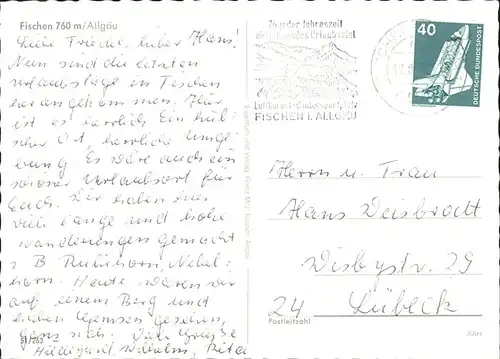 Fischen 760 m/Allgäu
Liebe Friedel, lieber Hans!
Nun sind die letzten
Urlaubstage in Fischen
herangekommen. Hier
ist es herrlich. Ein hüb-
scher Ort, herrliche Umge-
bung. Es wäre auch ein
schöner Urlaubsort für
Euch. Wir haben hier
viele lange und hohe
Wanderungen gemacht
z B Rubihorn, Nebel-
horn. Heute waren wir
auf einem Berg und
haben Gemsen gesehen,
ganz nah. Viele Grüße
Hildegund, Wilhelm, Rita
31/763
Zu jeder Jahreszeit
Urlaubsziel
Luftkurort + Wintersportplatz
FISCHEN I. ALLGÄU
40
DEUTSCHE BUNDESPOST
Herrn u. Frau
Hans Deisbrott
Disbystr. 29
24 Lübeck
Postleitzahl